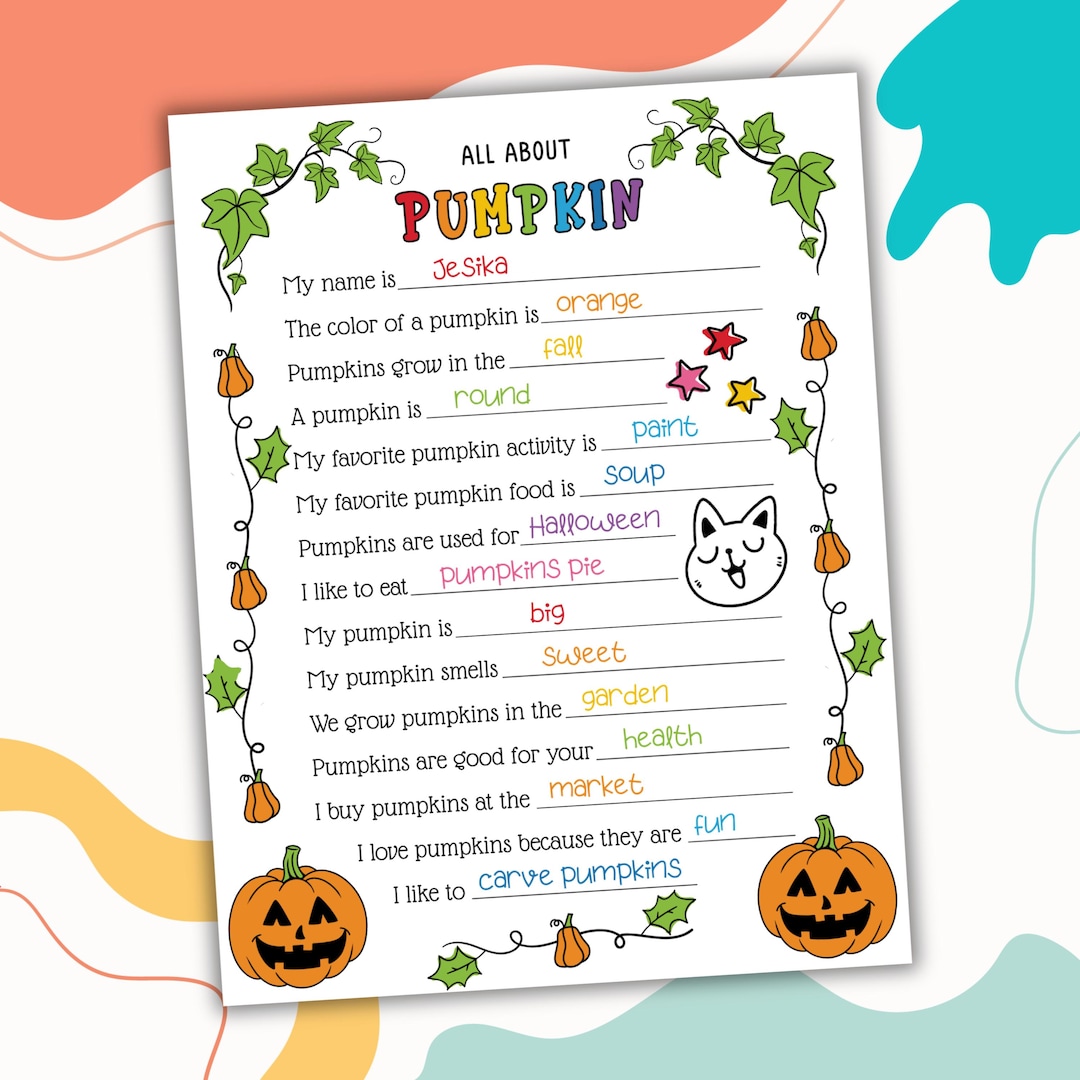 ALL ABOUT
PUMPKIN
My name is Jesika
The color of a pumpkin is orange
Pumpkins grow in the fall
A pumpkin is round
My favorite pumpkin activity is paint
My favorite pumpkin food is soup
Pumpkins are used for Halloween
I like to eat pumpkins pie
My pumpkin is big
My pumpkin smells sweet
We grow pumpkins in the garden
Pumpkins are good for your health
I buy pumpkins at the market
I love pumpkins because they are fun
I like to carve pumpkins